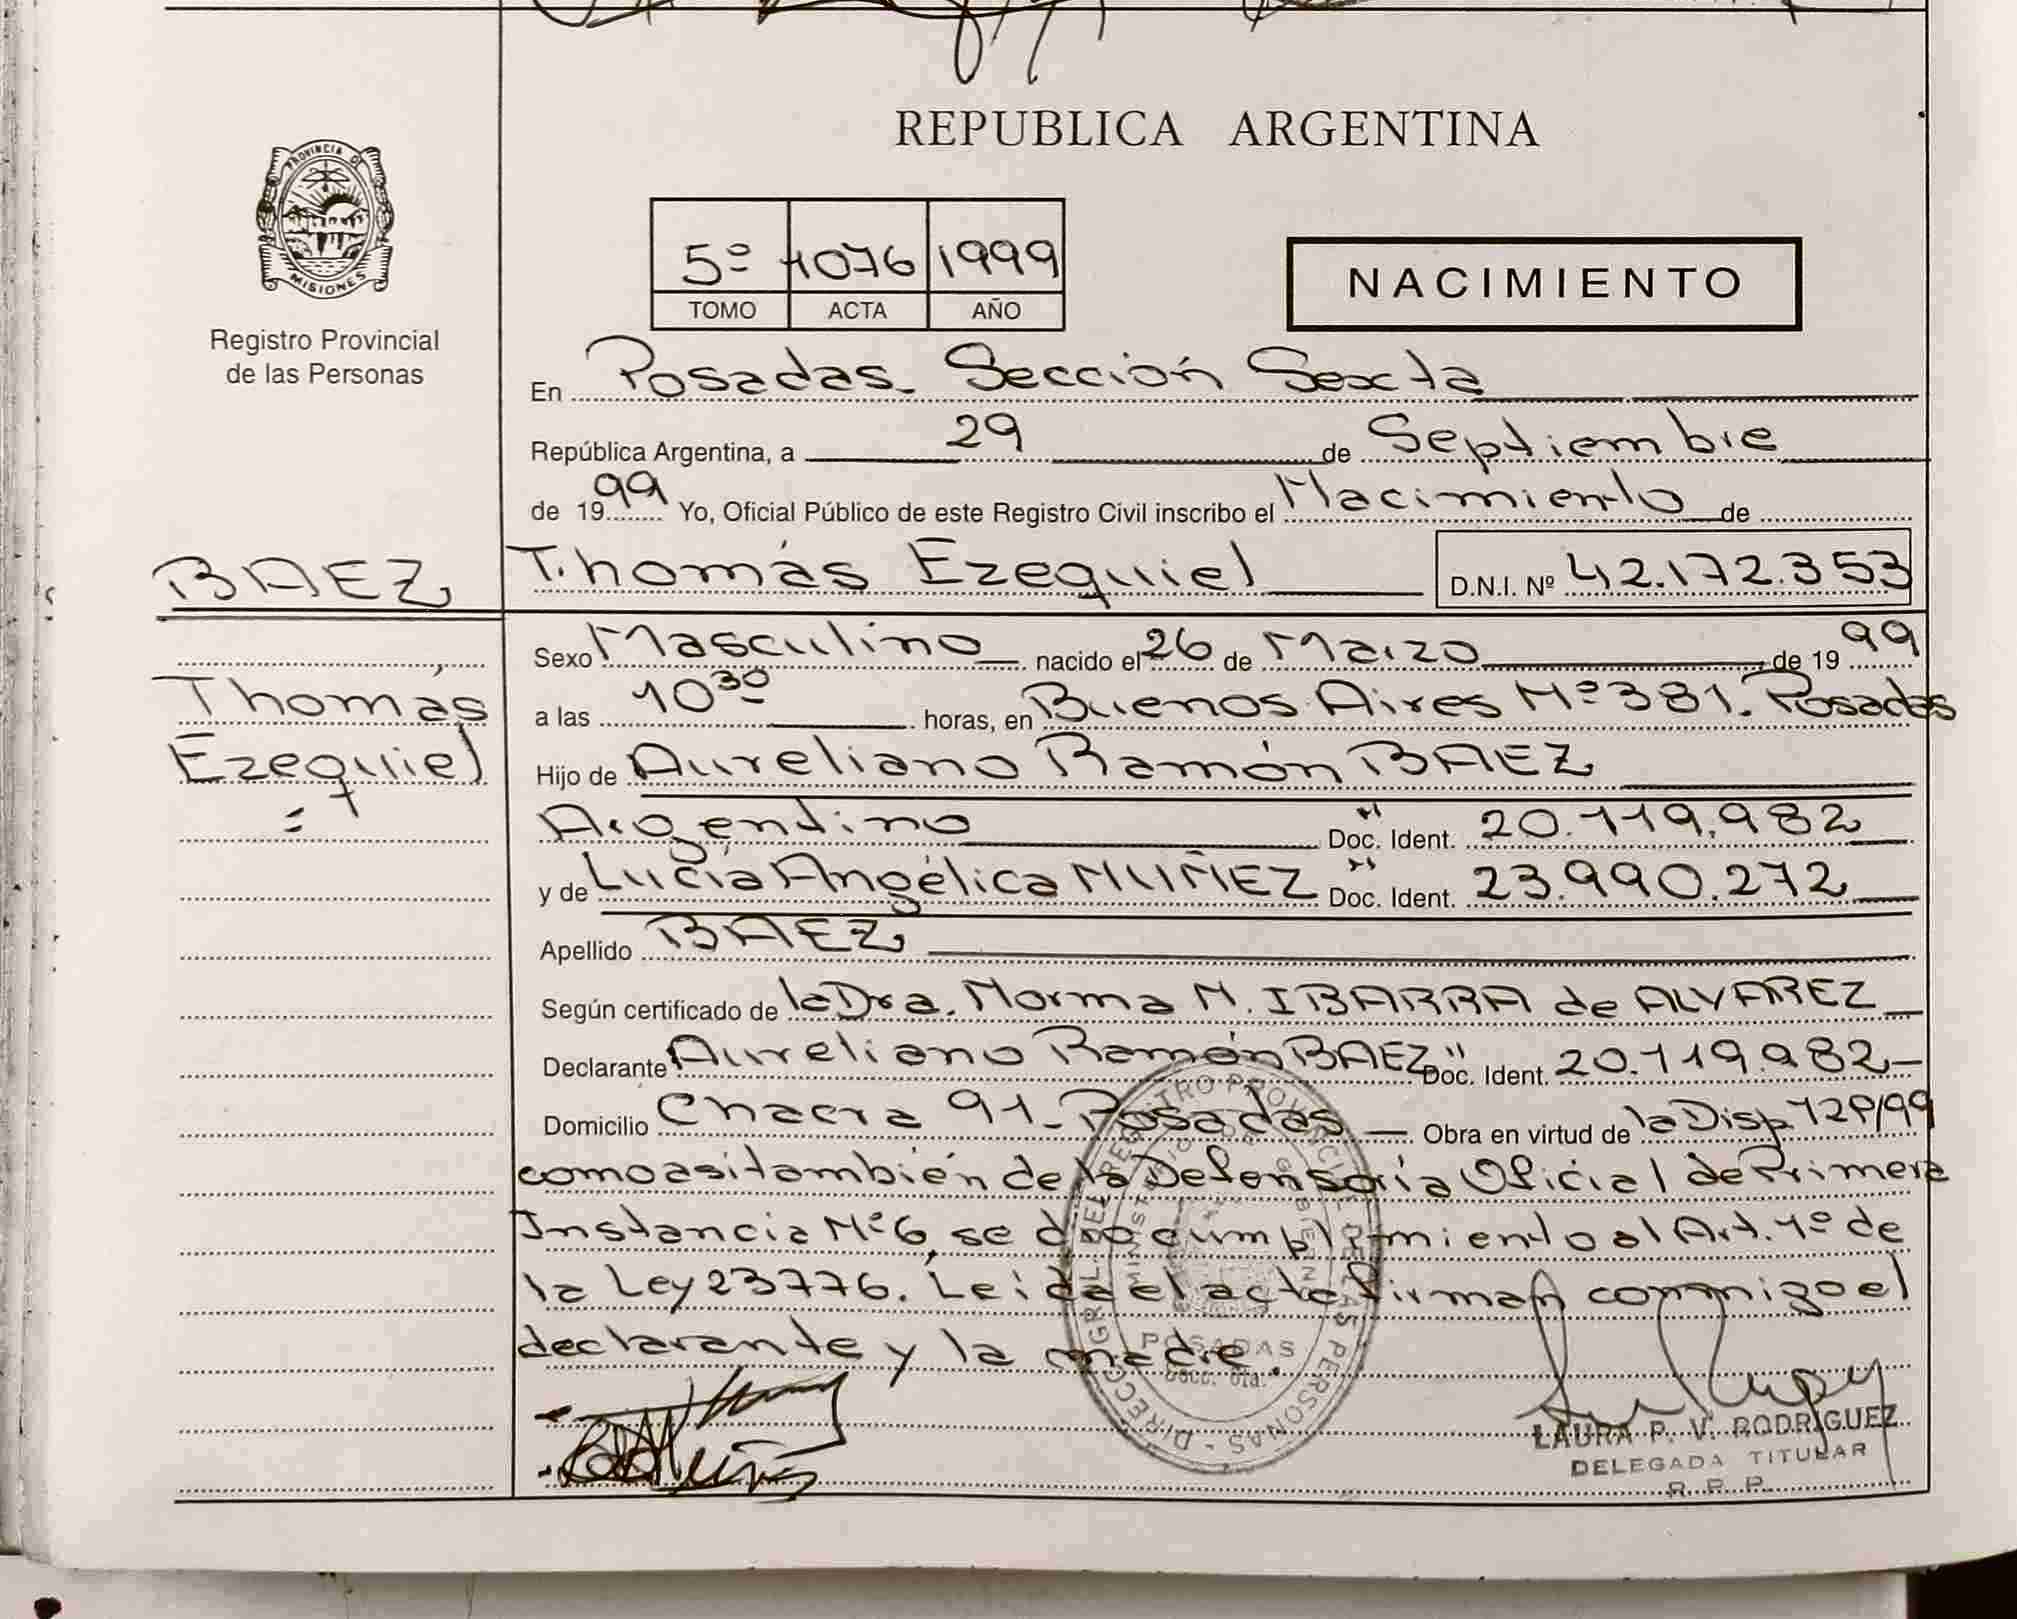 REPUBLICA ARGENTINA
PROVINCIA DE
MISIONES
Registro Provincial
de las Personas
5º 1076 1999
TOMO ACTA AÑO
NACIMIENTO
En Posadas. Sección Sexta
República Argentina, a 29 de Septiembre
de 1999 Yo, Oficial Público de este Registro Civil inscribo el Nacimiento de
BAEZ
Thomás Ezequiel D.N.I. Nº 42.172.353
Thomás
Ezequiel
Sexo Masculino nacido el 26 de Marzo de 1999
a las 10³⁰ horas, en Buenos Aires Nº 381. Posadas
Hijo de Aureliano Ramón BAEZ
Argentino " Doc. Ident. 20.119.982
y de Lucía Angélica NUÑEZ " Doc. Ident. 23.990.272
Apellido BAEZ
Según certificado de la Dra. Norma N. IBARRA de ALVAREZ
Declarante Aureliano Ramón BAEZ " Doc. Ident. 20.119.982-
Domicilio Chacra 91- Posadas Obra en virtud de la Disp. 129/99
como asi también de la Defensoría Oficial de Primera
Instancia Nº 6, se dio cumplimiento al Art. 1º de
la Ley 23776. Leida el acta firman conmigo el
declarante y la madre.
DIRECC. GRL. DEL REGISTRO PROVINCIAL DE LAS PERSONAS -
MINISTERIO DE GOBIERNO
POSADAS
Secc. 6ta.
LAURA P. V. RODRIGUEZ
DELEGADA TITULAR
R. P. P.